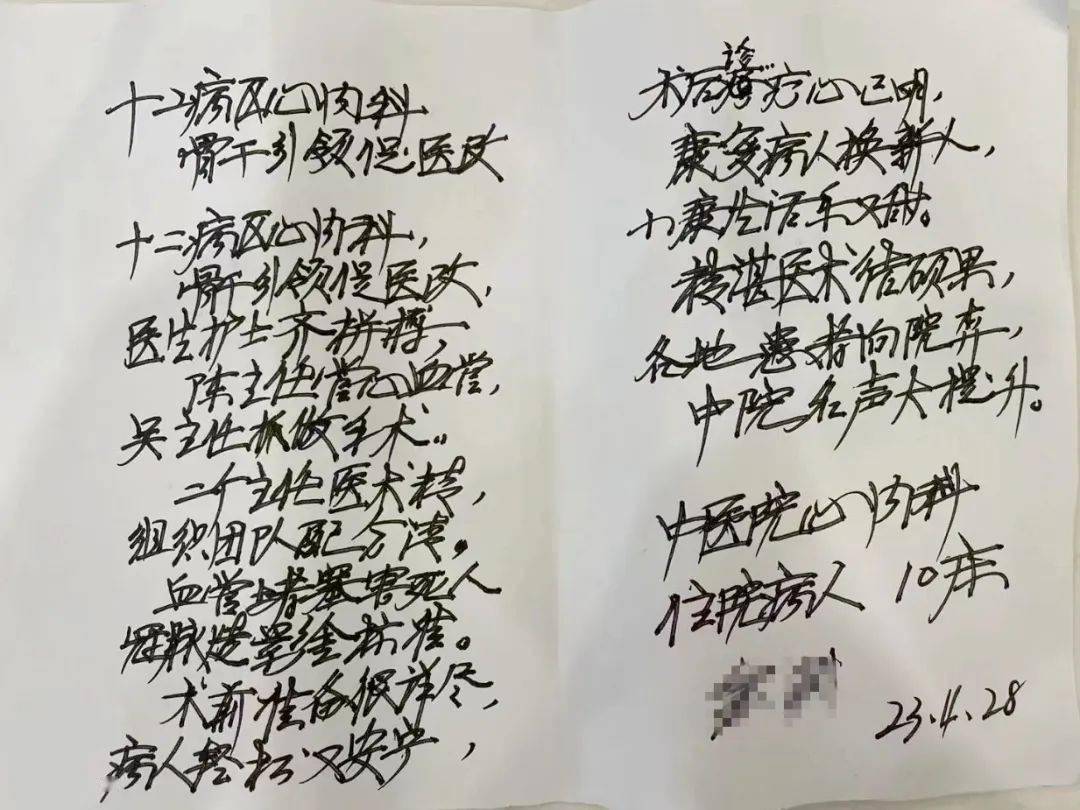 十二病区心内科
骨干引领促医改
十二病区心内科，
骨干引领促医改，
医生护士齐拼搏，
陈主任管心血管，
吴主任抓做手术。
二个主任医术精，
组织团队配合凑。
血管堵塞害死人
冠脉造影金标准。
术前准备很详尽，
病人轻松又安宁，
术后诊疗心已明，
康复病人换新人，
健康生活乐又甜。
精湛医术结硕果，
各地患者向院奔，
中院名声大提升。
中医院心内科
住院病人 10床
23.4.28